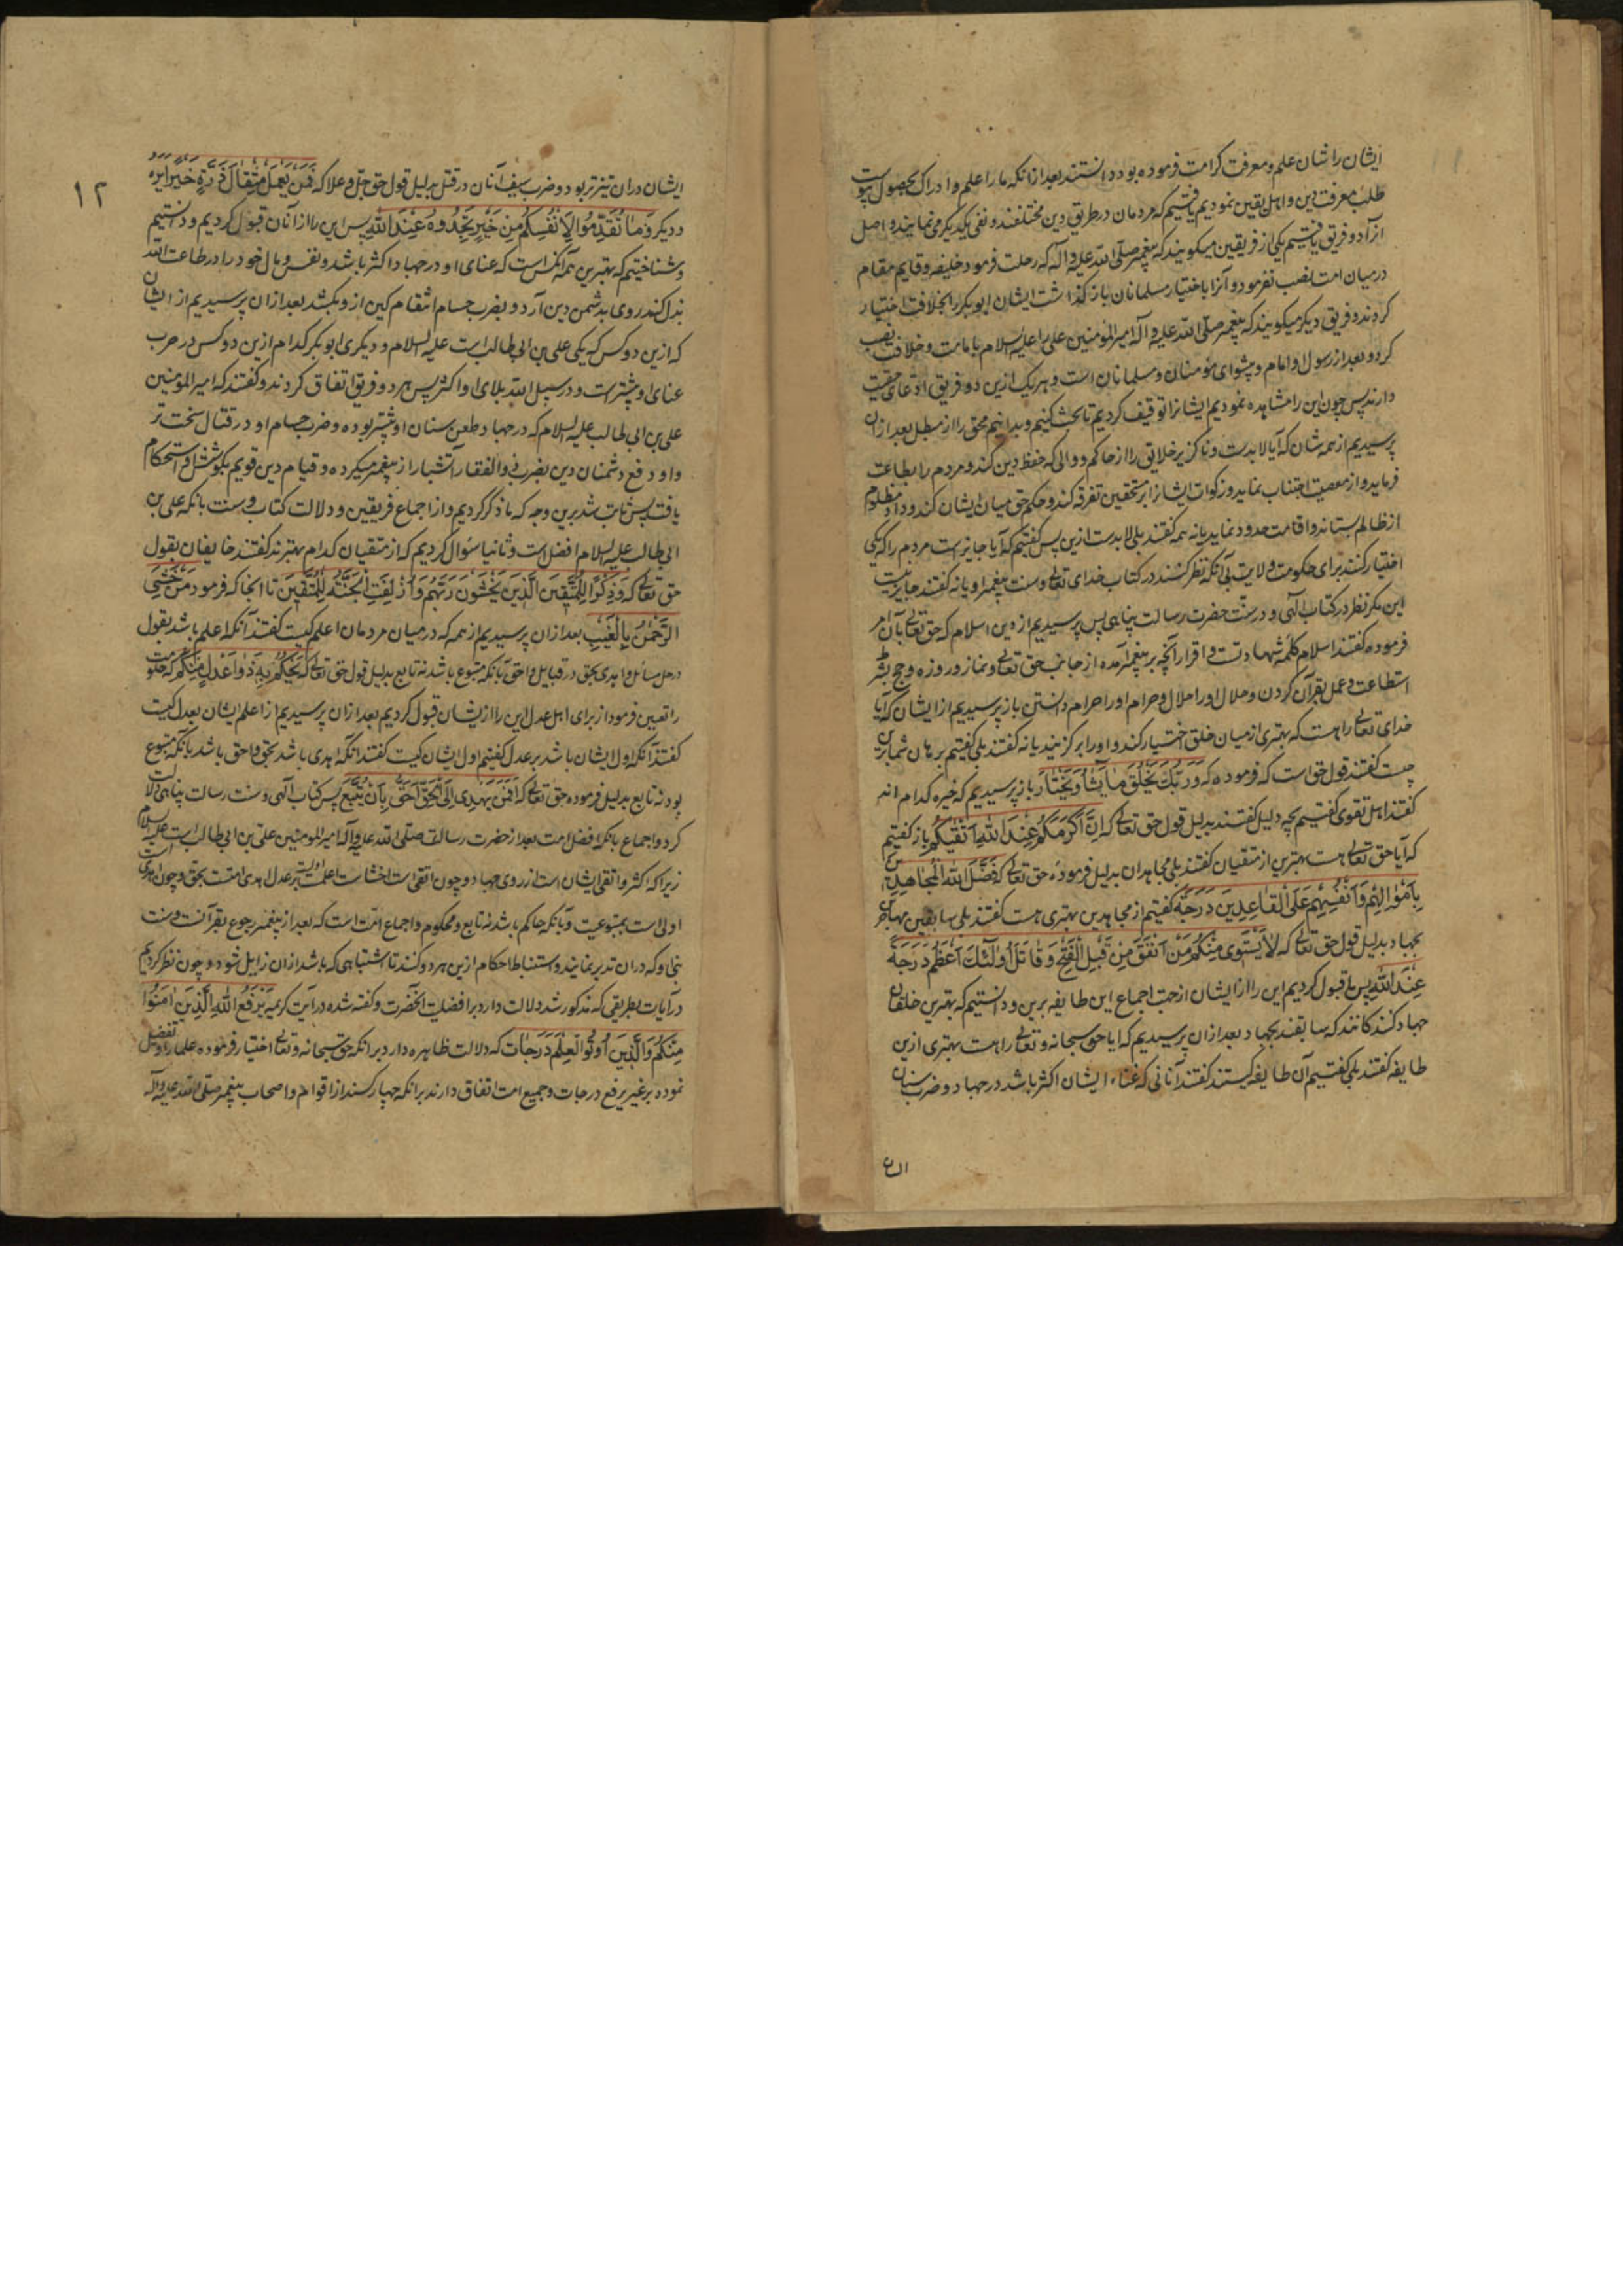 ایشان را شان علم و معرفت کرامت فرموده بود دانستند بعد از انکه ما را علم و ادراک بحصول پیوست
طلب معرفت دین و اهل یقین نمودیم یافتیم که مردمان در طریق دین مختلفند و نفی یکدیگر می نمایند و اصل
آنرا دو فریق یافتیم یکی از فریقین میکویند که پیغمبر صلی الله علیه و آله که رحلت فرمود خلیفه و قایم مقام
در میان امت نصب نفرمود و آنرا باختیار مسلمانان باز کذاشت ایشان ابوبکر را بخلافت اختیار
کردند و فریق دیکر میکویند که پیغمبر صلی الله علیه و آله امیر المؤمنین علی را علیه السلام بامامت و خلافت نصب
کرد و بعد از رسول او امام و پیشوای مؤمنان و مسلمانان است و هر یک ازین دو فریق ادعای حقیت
دارند پس چون این را مشاهده نمودیم ایشانرا توقیف کردیم تا بحث کنیم و بدانیم محق را از مبطل بعد ازان
پرسیدیم از همه شان که آیا لابدست و ناکزیر خلایق را از حاکم و والی که حفظ دین کند و مردم را بطاعت
فرماید و از معصیت اجتناب نماید و زکوات ایشانرا بر مستحقین تفرقه کند و حکم حق میان ایشان کند و داد مظلوم
از ظالم بستاند و اقامت حدود نماید یا نه همه کفتند بلی لابدست ازین پس کفتیم که آیا جایز است مردم را که یکی
اختیار کنند برای حکومت و ولایت بی آنکه نظر کنند در کتاب خدای تعالی و سنت پیغمبر او یا نه کفتند جایز نیست
این مکر نظر در کتاب الهی و در سنت حضرت رسالت پناهی پس پرسیدیم از دین اسلام که حق تعالی بآن امر
فرموده کفتند اسلام کلمه شهادتست و اقرار بآنچه بر پیغمبر آمده از جانب حق تعالی و نماز و روزه و حج بشرط
استطاعت و عمل بقرآن کردن و حلال او را حلال و حرام او را حرام دانستن باز پرسیدیم از ایشان که آیا
خدای تعالی را هست که بهتری از میان خلق اختیار کند و او را برکزیند یا نه کفتند بلی کفتیم برهان شما برین
چیست کفتند قول حق است که فرموده که وَرَبُّكَ يَخْلُقُ مَا يَشَاءُ وَيَخْتَارُ باز پرسیدیم که خیره کدام اند
کفتند اهل تقوی کفتیم بچه دلیل کفتند بدلیل قول حق تعالی که اِنَّ اَكْرَمَكُمْ عِنْدَ اللهِ اَتْقٰيكُمْ باز کفتیم
که آیا حق تعالی را هست بهترین از متقیان کفتند بلی مجاهدان بدلیل فرموده حق تعالی که فَضَّلَ اللهُ الْمُجَاهِدِينَ
بِاَمْوَالِهِمْ وَاَنْفُسِهِمْ عَلَى الْقَاعِدِينَ دَرَجَةً کفتیم از مجاهدین بهتری هست کفتند بلی سابقین مهاجر
بجهاد بدلیل قول حق تعالی که لَا يَسْتَوِى مِنْكُمْ مَنْ اَنْفَقَ مِنْ قَبْلِ الْفَتْحِ وَقَاتَلَ اُولٰئِكَ اَعْظَمُ دَرَجَةً
عِنْدَ اللهِ پس ما قبول کردیم این را از ایشان از جهت اجماع این طایفه برین و دانستیم که بهترین خلقان
جهاد کنندکانند که سابقند بجهاد بعد ازان پرسیدیم که آیا حق سبحانه و تعالی را هست بهتری ازین
طایفه کفتند بلی کفتیم آن طایفه کیستند کفتند آنانی که غناء ایشان اکثر باشد در جهاد و ضرب سنان
۱۲
ایشان دران تیزتر بود و ضرب سیف آنان در قتل بدلیل قول حق جل و علا که فَمَنْ يَعْمَلْ مِثْقَالَ ذَرَّةٍ خَيْرًا يَرَهُ
و دیکر وَمَا تُقَدِّمُوا لِاَنْفُسِكُمْ مِنْ خَيْرٍ تَجِدُوهُ عِنْدَ اللهِ پس این را از آنان قبول کردیم و دانستیم
و شناختیم که بهترین همه آنکس است که عنای او در جهاد اکثر باشد و نفس و مال خود را در طاعت الله
بذل کند روی بدشمن دین آرد و بضرب حسام انتقام کین ازو بکشد بعد ازان پرسیدیم از ایشان
که ازین دو کس که یکی علی بن ابی طالب است علیه السلام و دیکری ابوبکر کدام ازین دو کس در حرب
عنای او بیشتر است و در سبیل الله بلای او اکثر پس هر دو فریق اتفاق کردند و کفتند که امیر المؤمنین
علی بن ابی طالب علیه السلام که در جهاد طعن سنان او بیشتر بوده و ضرب حسام او در قتال سخت تر
و او دفع دشمنان دین بضرب ذوالفقار آتشبار از پیغمبر میکرده و قیام دین قویم بکوشش او استحکام
یافت پس ثابت شد برین وجه که ما ذکر کردیم و از اجماع فریقین و دلالت کتاب و سنت بانکه علی بن
ابی طالب علیه السلام افضل است و ثانیا سؤال کردیم که از متقیان کدام بهترند کفتند خایفان بقول
حق تعالی که وَذِكْرًا لِلْمُتَّقِينَ الَّذِينَ يَخْشَوْنَ رَبَّهُمْ وَاُزْلِفَتِ الْجَنَّةُ لِلْمُتَّقِينَ تا انجا که فرمود مَنْ خَشِىَ
الرَّحْمٰنَ بِالْغَيْبِ بعد ازان پرسیدیم از همه که در میان مردمان اعلم کیست کفتند آنکه اعلم باشد بقول
در حل مسائل و اهدی بحق در قبایل و احق بآنکه متبوع باشد نه تابع بدلیل قول حق تعالی که يَحْكُمُ بِهِ ذَوَا عَدْلٍ مِنْكُمْ که حکومت
را تعیین فرمود از برای اهل عدل این را از ایشان قبول کردیم بعد ازان پرسیدیم از اعلم ایشان بعدل کیست
کفتند آنکه اول ایشان باشد بر عدل کفتیم اول ایشان کیست کفتند آنکه اهدی باشد بحق و احق باشد بآنکه متبوع
بود نه تابع بدلیل فرموده حق تعالی که اَفَمَنْ يَهْدِى اِلَى الْحَقِّ اَحَقُّ اَنْ يُتَّبَعَ پس کتاب الهی و سنت رسالت پناهی دلالت
کرد و اجماع بآنکه افضل امت بعد از حضرت رسالت صلی الله علیه و آله امیر المؤمنین علی بن ابی طالب است علیه السلام
زیرا که اکثر و اتقی ایشان است از روی جهاد و چون اتقی است اخشاست اعلمست بر عدل اهدی امتست بحق و چون اهدی است
اولی است بمتبوعیت و بآنکه حاکم باشد نه تابع و محکوم و اجماع امت است که بعد از پیغمبر رجوع بقرآنست و سنت
نبی او که دران تدبر نمایند و استنباط احکام ازین هر دو کنند تا اشتباهی که باشد ازان زایل شود و چون نظر کردیم
در آیات بطریقی که مذکور شد دلالت دارد بر افضلیت آنحضرت و کفته شده در آیت کریمه يَرْفَعِ اللهُ الَّذِينَ اٰمَنُوا
مِنْكُمْ وَالَّذِينَ اُوتُوا الْعِلْمَ دَرَجَاتٍ که دلالت ظاهره دارد برانکه حق سبحانه و تعالی اختیار فرموده علما را و تفضیل
نموده بر غیر برفع درجات و جمیع امت اتفاق دارند برانکه چهار کسند از اقوام و اصحاب پیغمبر صلی الله علیه و آله